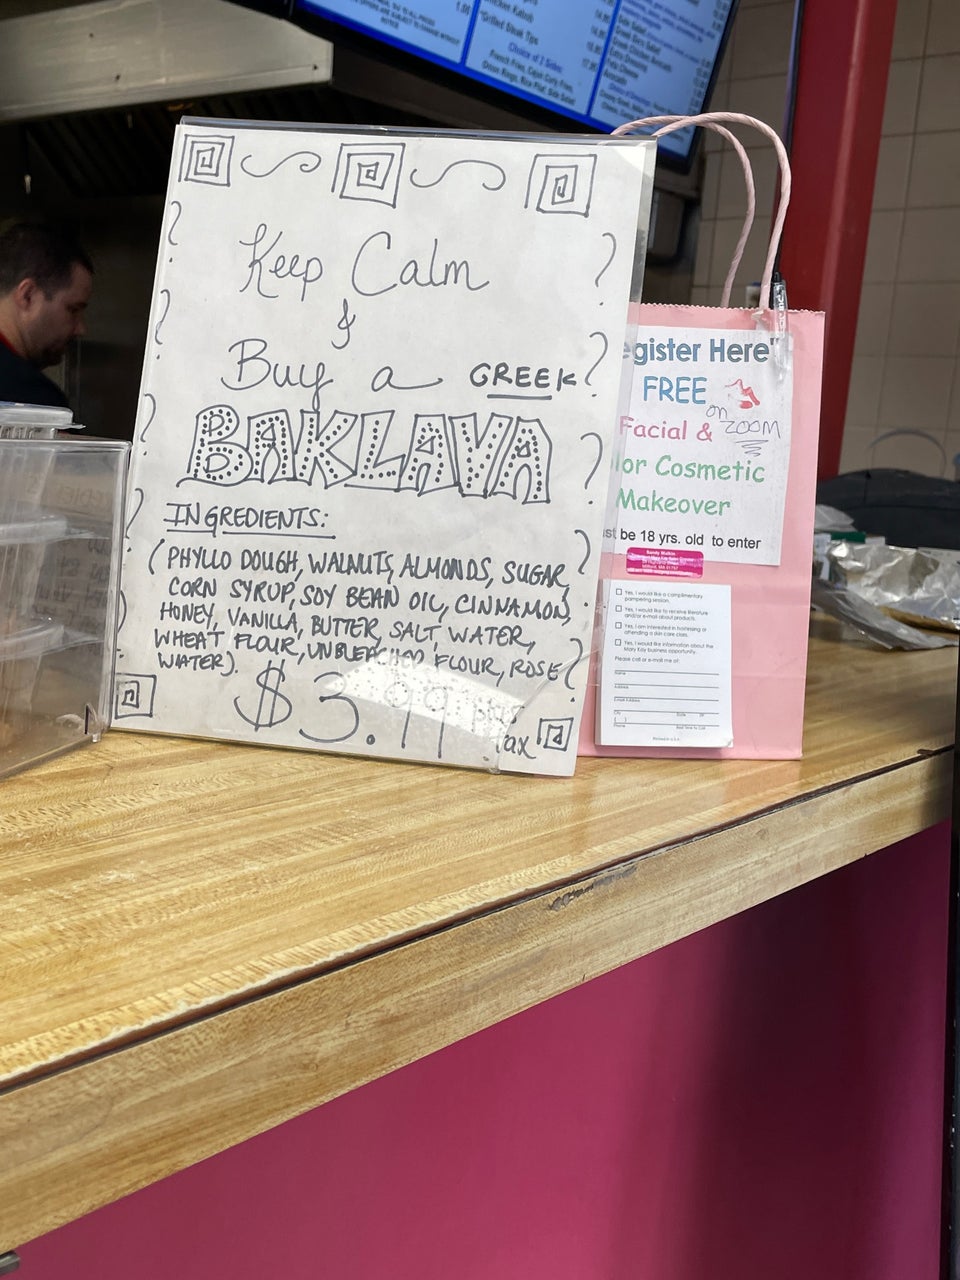 Keep Calm
&
Buy a GREEK
BAKLAVA
INGREDIENTS:
(PHYLLO DOUGH, WALNUTS, ALMONDS, SUGAR,
CORN SYRUP, SOY BEAN OIL, CINNAMON,
HONEY, VANILLA, BUTTER, SALT, WATER,
WHEAT FLOUR, UNBLEACHED FLOUR, ROSE
WATER).
$3.99 plus
tax
egister Here"
FREE
on ZOOM
Facial &
lor Cosmetic
Makeover
st be 18 yrs. old to enter
Sandy Malkin
Yes, I would like a complimentary
pampering session.
Yes, I would like to receive literature
and/or e-mail about products.
Yes, I am interested in hostessing or
attending a skin care class.
Yes, I would like information about the
Mary Kay business opportunity.
Please call or e-mail me at:
Name
Address
Email Address
City State ZIP
( )
Phone Best Time to Call
Printed in U.S.A.
Grilled Steak Tips
Choice of 2 Sides
French Fries, Cajun Curly Fries,
Onion Rings, Rice Pilaf, Side Salad